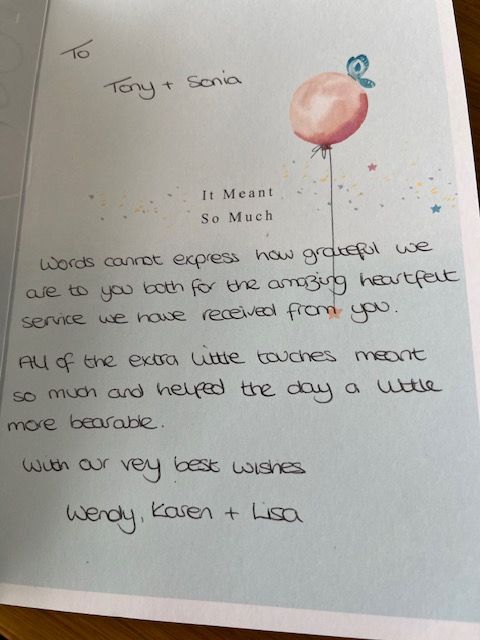 To
Tony + Sonia
It Meant
So Much
Words cannot express how grateful we
are to you both for the amazing heartfelt
service we have received from you.
All of the extra little touches meant
so much and helped the day a little
more bearable.
With our vey best wishes
Wendy, Karen + Lisa